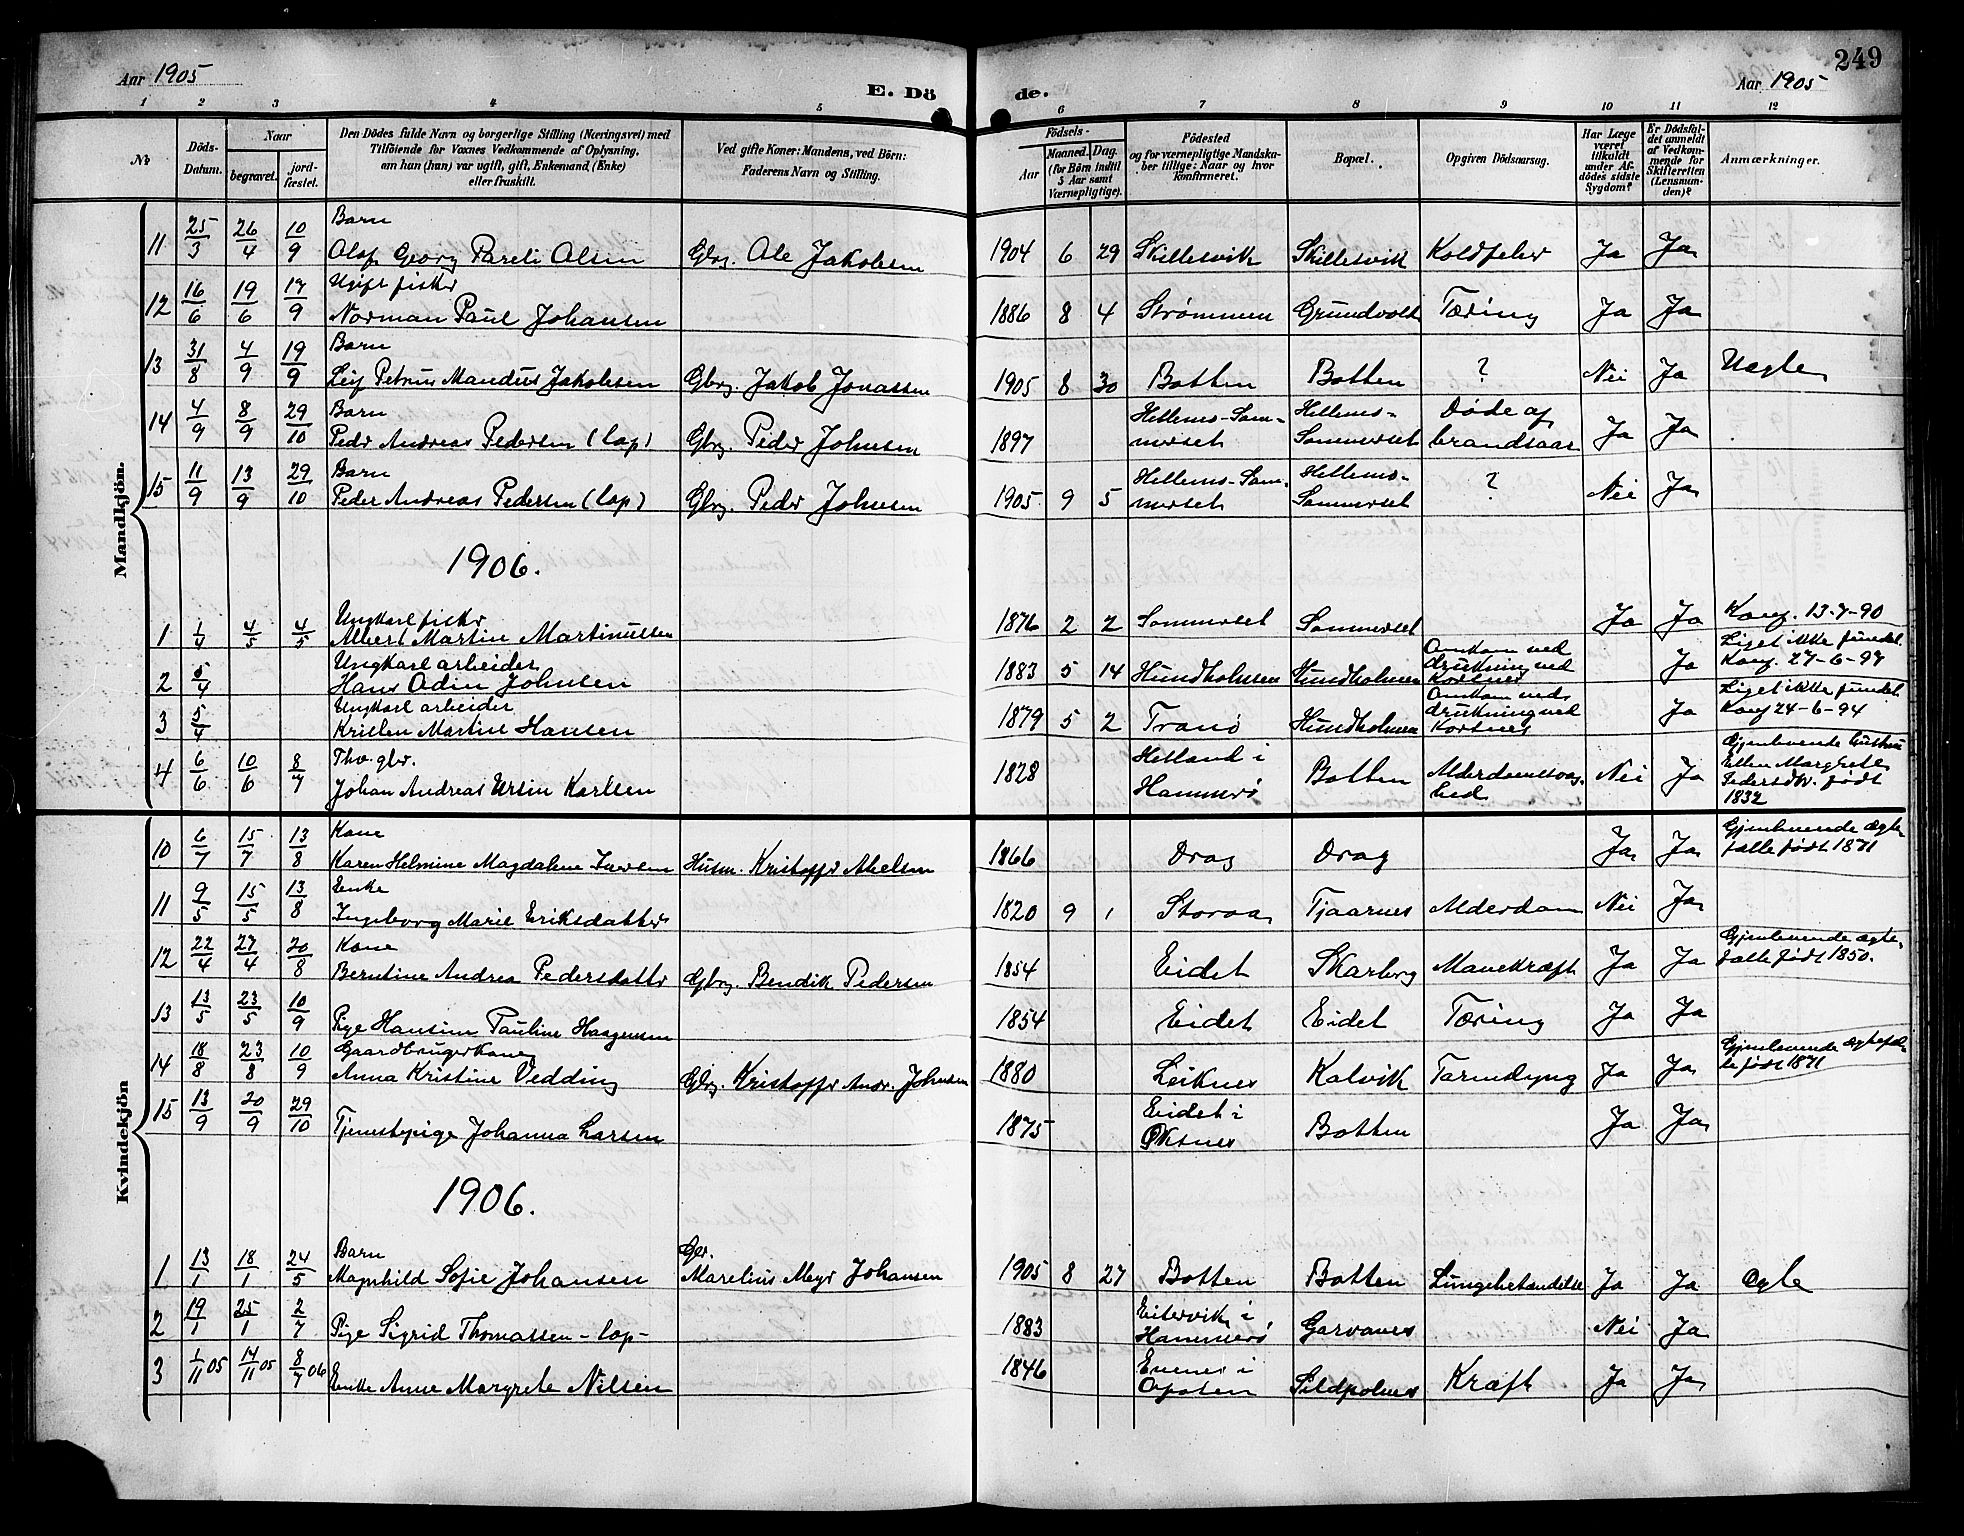 249
Aar 1905
E. Dö
de.
Aar 1905
1 2 3 4 5 6 7 8 9 10 11 12
No
Döds-Datum.
Naar
begravet.
jord-fæstet.
Den Dödes fulde Navn og borgerlige Stilling (Næringsvei) med
Tilföiende for Voxnes Vedkommende af Oplysning,
om han (hun) var ugift, gift, Enkemand, (Enke)
eller fraskilt.
Ved gifte Koner: Mandens, ved Börn:
Faderens Navn og Stilling.
Födsels-
Aar
Maaned. Dag.
(for Börn indtil
5 Aar samt
Værnepligtige).
Födested
og for værnepligtige Mandska-
ber tillige: Naar og hvor
konfirmeret.
Bopæl.
Opgiven Dödsaarsag.
Har Læge
været
tilkaldt
under Af-
dödes sidste
Sygdom?
Er Dödsfal-
det anmeldt
af Vedkom-
mende for
Skifteretten
(Lensman-
den)?
Anmærkninger.
Mandkjön.
11 25/3 26/4 10/9 Barn
Olaf Georg Pareli Olsen Gbrg. Ole Jakobsen 1904 6 29 Skillesvik Skillesvik Koldfeber Ja Ja
12 16/6 19/6 17/9 Ugift fisker
Norman Paul Johansen 1886 8 4 Strømmen Grundvolt Tæring Ja Ja
13 31/8 4/9 19/9 Barn
Leif Petrus Mandus Jakobsen Gbrg. Jakob Jonassen 1905 8 30 Botten Botten ? Nei Ja Uegte
14 4/9 8/9 29/10 Barn
Peder Andreas Pedersen (lap) Gbrg. Peder Johnsen 1897 Hellemo-Som-
merset Hellemo-
Sommerset Døde af
brandsaar Ja Ja
15 11/9 13/9 29/10 Barn
Peder Andreas Pedersen (lap) Gbrg. Peder Johnsen 1905 9 5 Hellemo-Som-
merset Hellemo-
Sommerset ? Nei Ja
1906.
1 1/4 4/5 4/5 Ungkarl fisker
Albert Martin Martinussen 1876 2 2 Sommerset Sommerset Ja Ja Konf. 13-7-90
2 5/4 Ungkarl arbeider
Hans Odin Johnsen 1883 5 14 Hundholmen Hundholmen Omkom ved
drukning ved
Korsnes Ja Liget ikke fundet.
Konf. 27-6-97
3 5/4 Ungkarl arbeider
Kristen Martin Hansen 1879 5 2 Tranö Hundholmen Omkom ved
drukning ved
Korsnes Ja Liget ikke fundet
Konf 24-6-94
4 6/6 10/6 8/7 Fhv. gbr.
Johan Andreas Ursin Karlsen 1828 Helland i
Hammerø Botten Alderdomssvag-
hed Nei Ja Gjenlevende hustru
Ellen Margrete
Pedersdtr. født
1832
Kvindekjön
10 6/7 15/7 13/8 Kone
Karen Helmine Magdalene Iversen Husm. Kristoffer Abelsen 1866 Drag Drag Ja Ja Gjenlevende ægte-
fælle født 1871
11 9/5 15/5 13/8 Enke
Ingeborg Marie Eriksdatter 1820 9 1 Storaa Tjaarnes Alderdom Nei Ja
12 22/4 27/4 20/8 Kone
Berntine Andrea Pedersdatter Gbrg. Bendik Pedersen 1854 Eidet Skarberg Mavekræft Ja Ja Gjenlevende ægte-
fælle født 1850.
13 13/5 23/5 10/9
Pige Hansine Pauline Haagensen 1854 Eidet Eidet Tæring Ja Ja
14 18/8 23/8 10/9 Gaardbrugerkone
Anna Kristine Vedding Gbrg. Kristoffer Andr. Johnsen 1880 Leiknes Kalvik Tarmslyng Ja Ja Gjenlevende ægtefæl-
le født 1871
15 13/9 20/9 29/10
Tjenestepige Johanna Larsen 1875 Eidet i
Øksnes Botten Ja Ja
1906.
1 13/1 18/1 24/5 Barn
Magnhild Sofie Johansen Gbr.
Marelius Meyer Johansen 1905 8 27 Botten Botten Lungebetændelse Ja Ja Ægte
2 19/1 25/1 2/7
Pige Sigrid Thomassen - lap - 1883 Eitervik i
Hammerø Garvanes Nei Ja
3 1/11 05 14/11 05 8/7 06
Enke Anne Margrete Nilsen 1846 Evenes i
Ofoten Sildpolnes Kræft Ja Ja